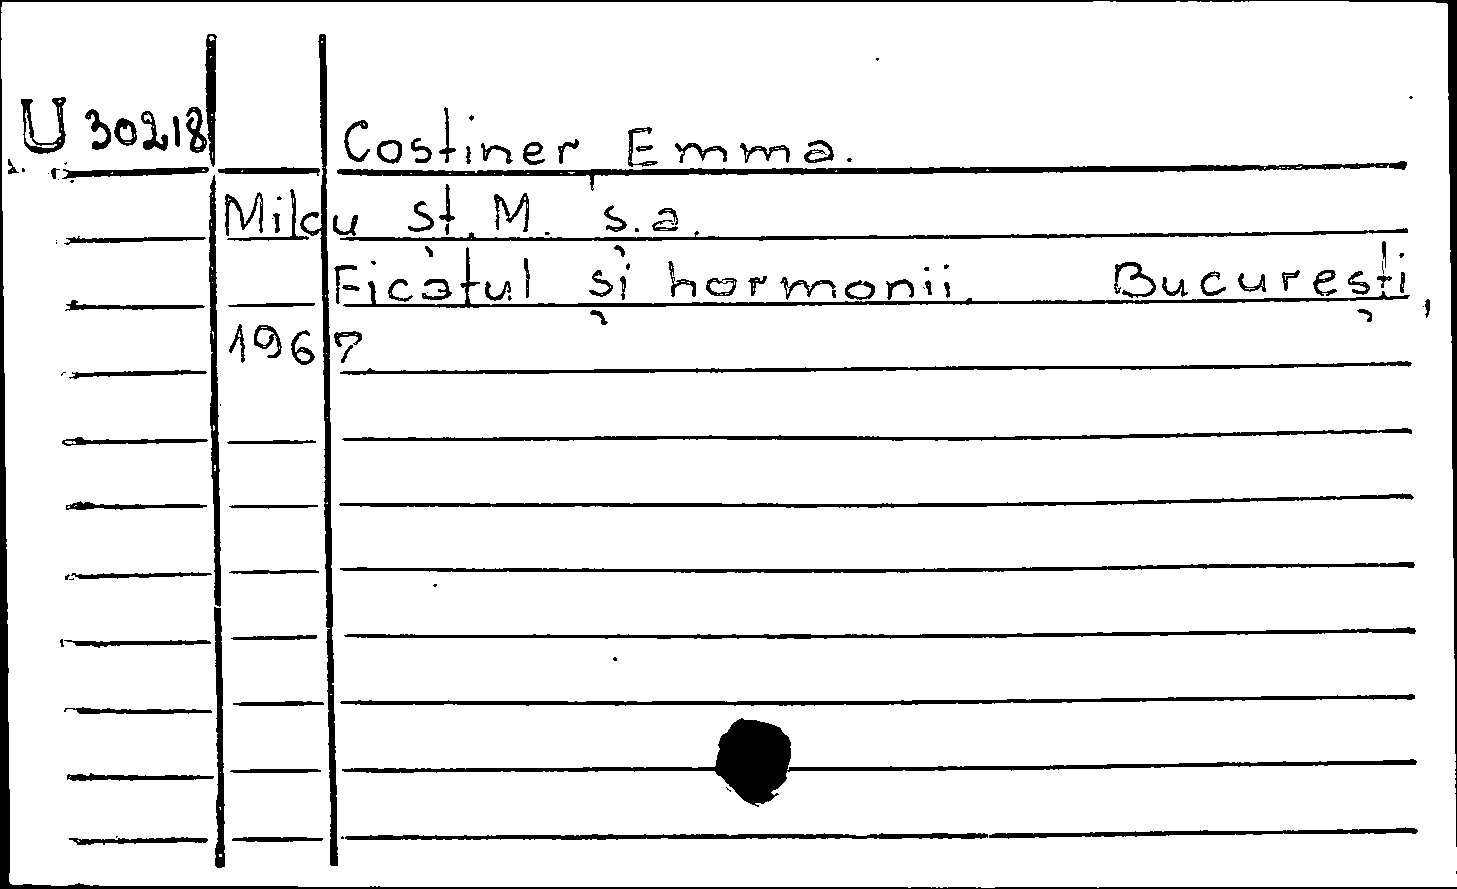 U 30218 Costiner Emma.
Milcu St. M. ș.a.
Ficatul și hormonii. București,
1967